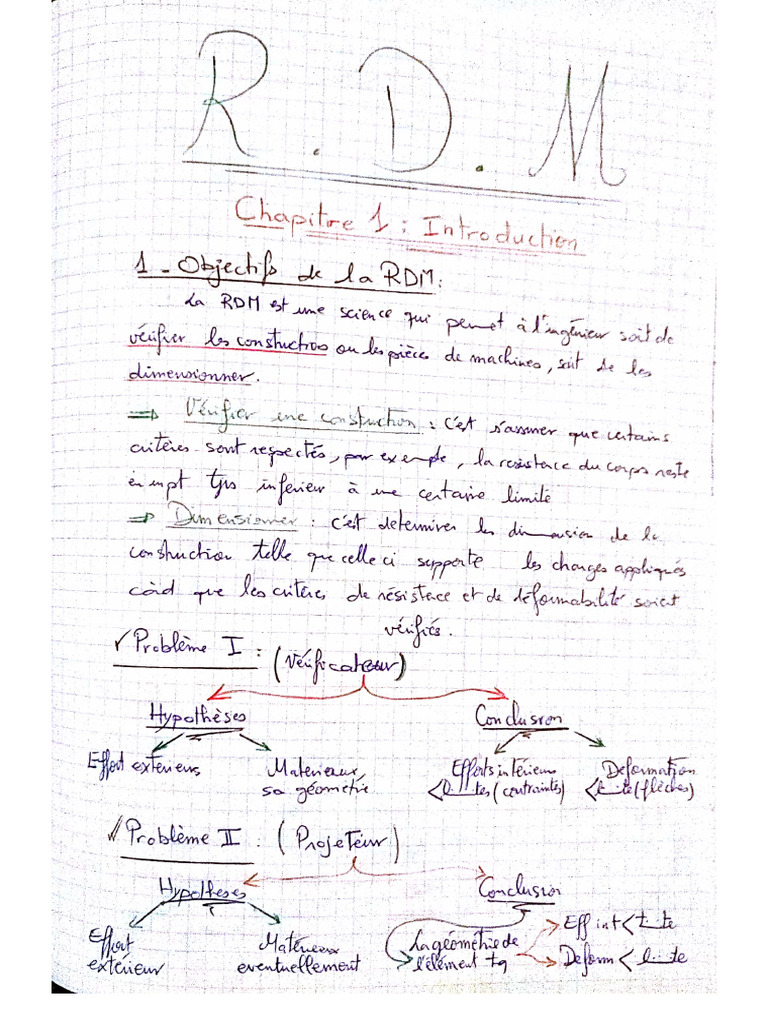 R.D.M
Chapitre 1 : Introduction
1 - Objectifs de la RDM :
La RDM est une science qui permet à l'ingénieur soit de
vérifier les constuctios ou les pièces de machines, soit de les
dimensionner.
⇒ Vérifier une constuction : c'est s'assurer que certains
critères sont respectés, par exemple, la resistence du corps reste
en tjrs inferieur à une certaine limite
⇒ Dimensionner : c'est determiner les dimension de la
construction telle que celle ci supporte les charges appliqués
càd que les critères de résistence et de déformabilité soient
vérifiés.
✓ Problème I : (Vérificateur)
Hypothèses Conclusion
Effort exterieurs Materieaux, sa géométrie Efforts intérieurs < l__tes (contraintes) Deformation < l__te (flèches)
✓ Problème II : (Projeteur)
Hypothèses Conclusion
Effort extérieur Matérieaux eventuellement La géométrie de l'élément tq Eff int < l__te
Deform < l__te